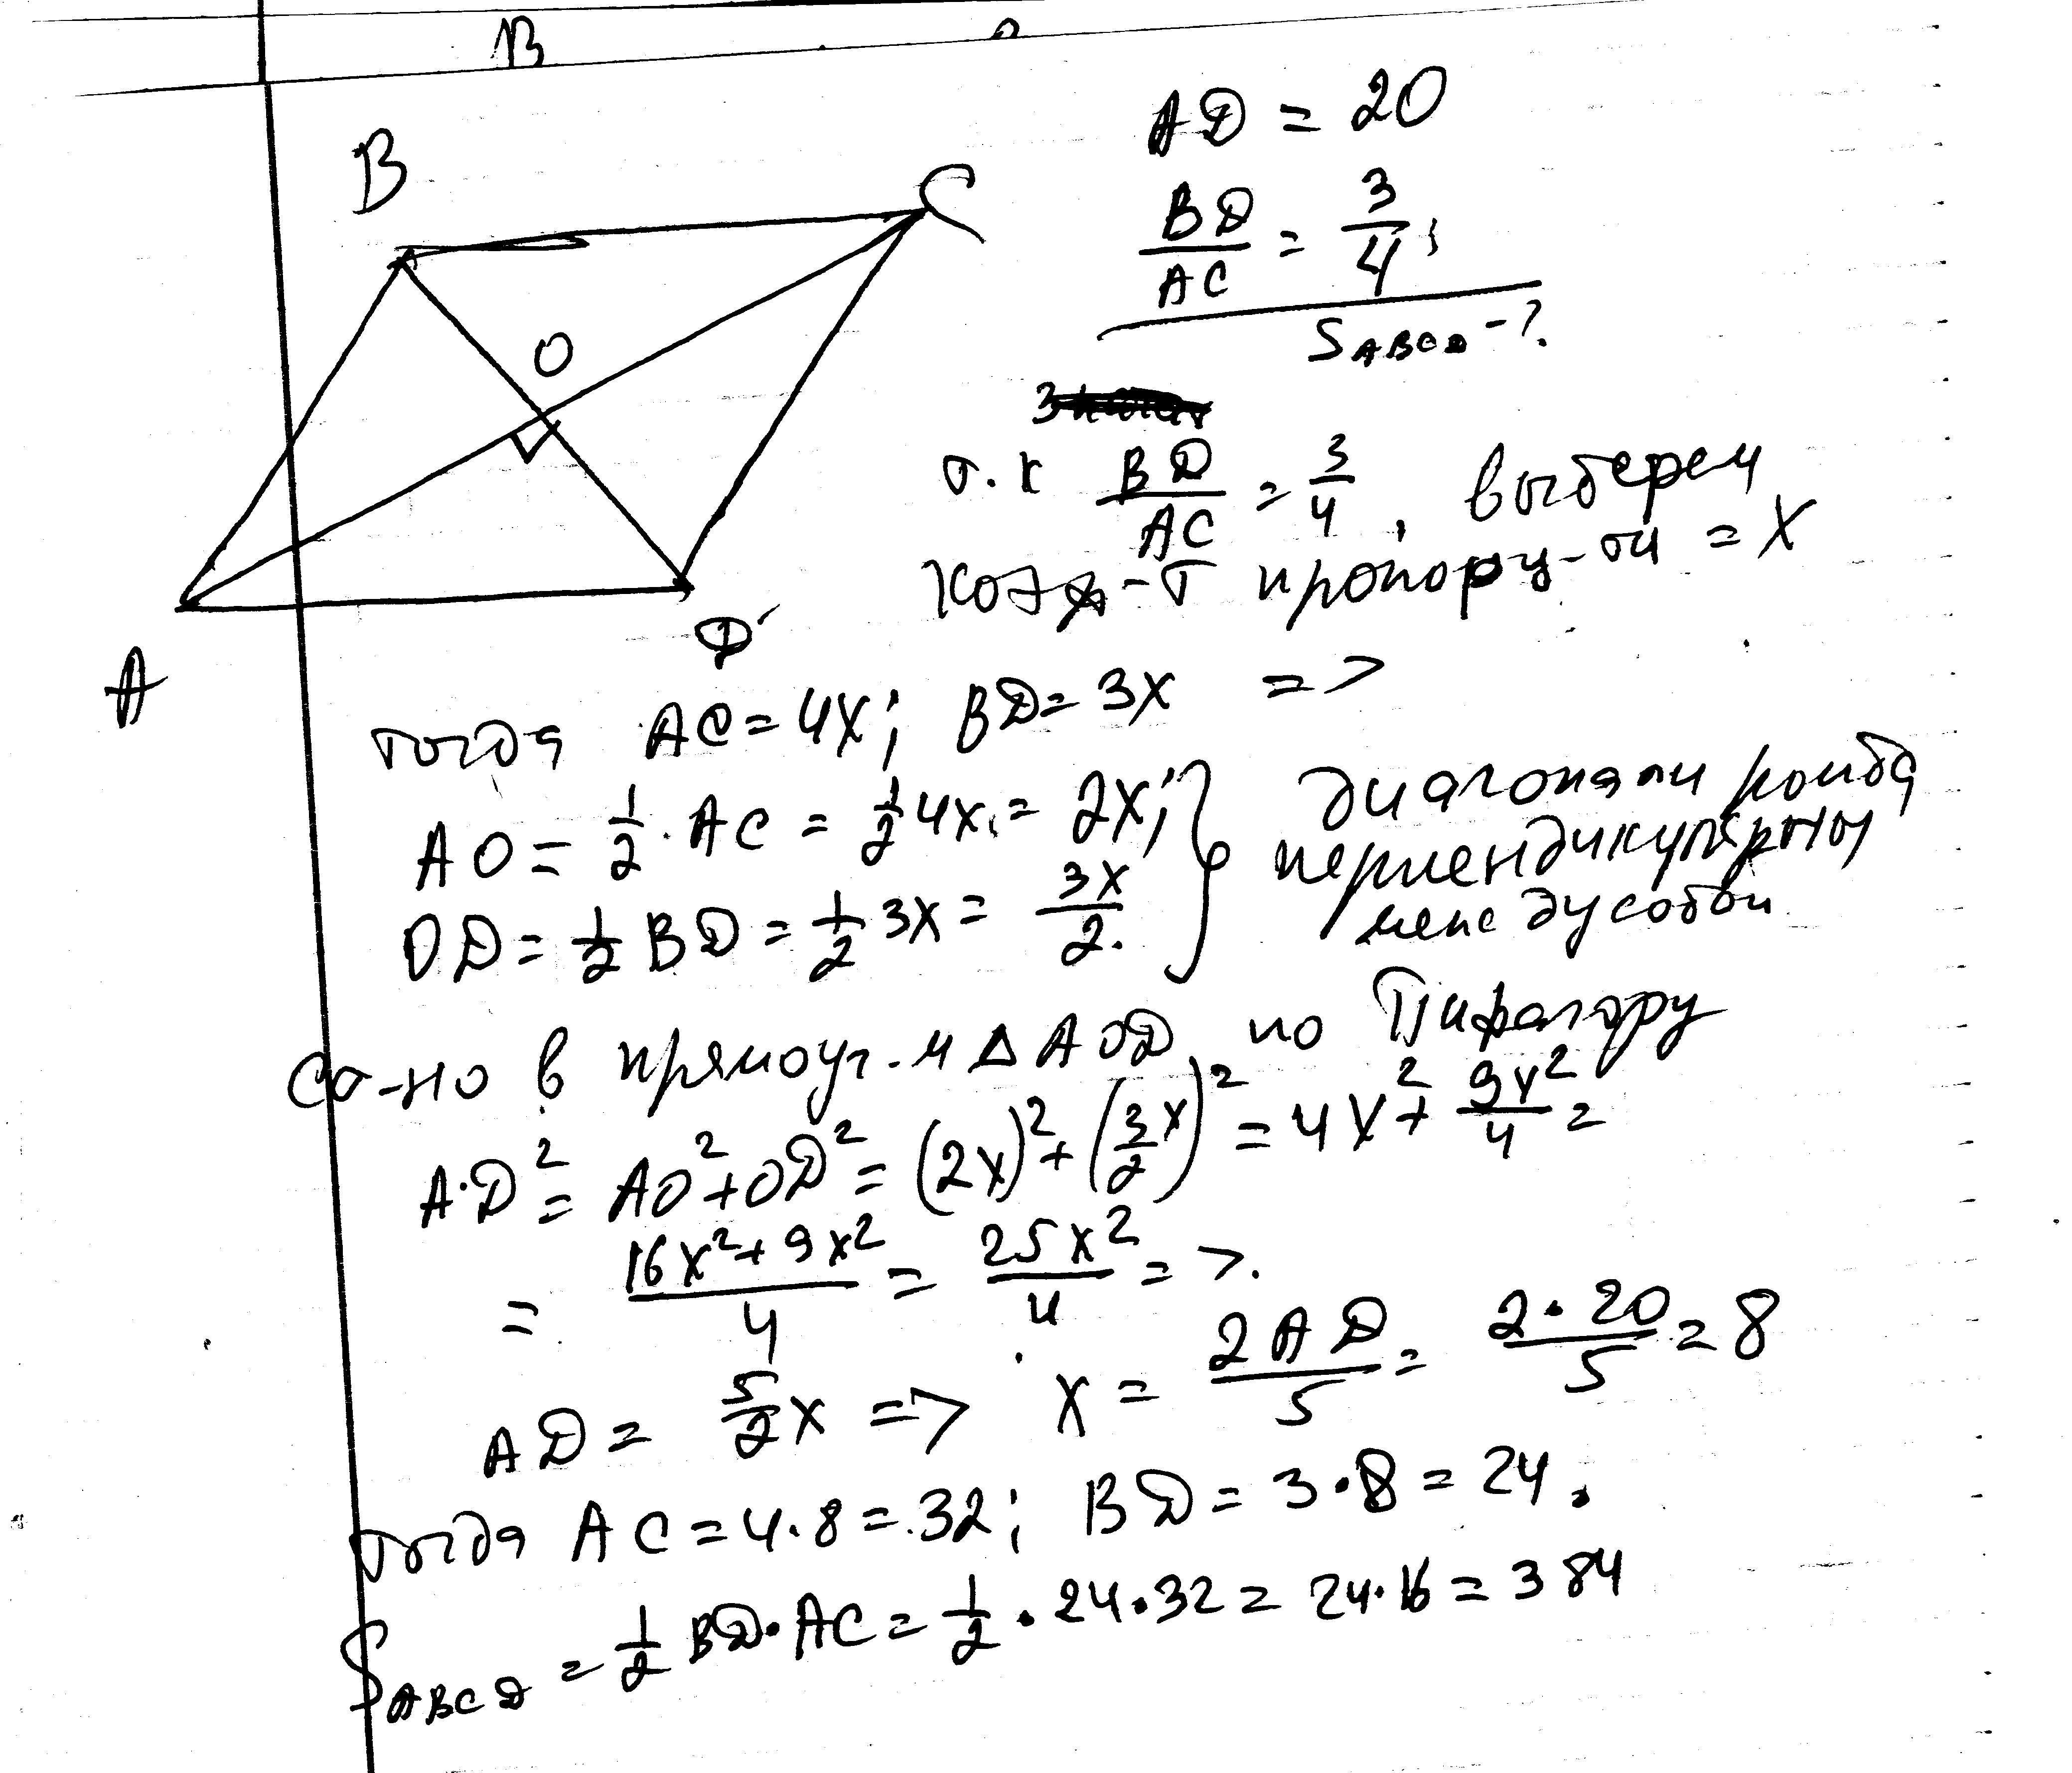 B
B
C
O
A
D
AD = 20
BD/AC = 3/4;
S ABCD - ?
т.к BD/AC = 3/4, выберем
коэф-т пропорц-ти = x
тогда AC = 4x; BD = 3x =>
AO = 1/2 · AC = 1/2 4x = 2x; } диагонали ромба
OD = 1/2 BD = 1/2 3x = 3x/2. перпендикулярны
между собой
со-но в прямоуг.м △ AOD по Пифагору
AD² = AO² + OD² = (2x)² + (3/2 x)² = 4x² + 9x²/4 =
= 16x² + 9x²/4 = 25x²/4 =>.
AD = 5/2 x => x = 2AD/5 = 2·20/5 = 8
тогда AC = 4·8 = 32; BD = 3·8 = 24.
S ABCD = 1/2 BD·AC = 1/2 · 24·32 = 24·16 = 384